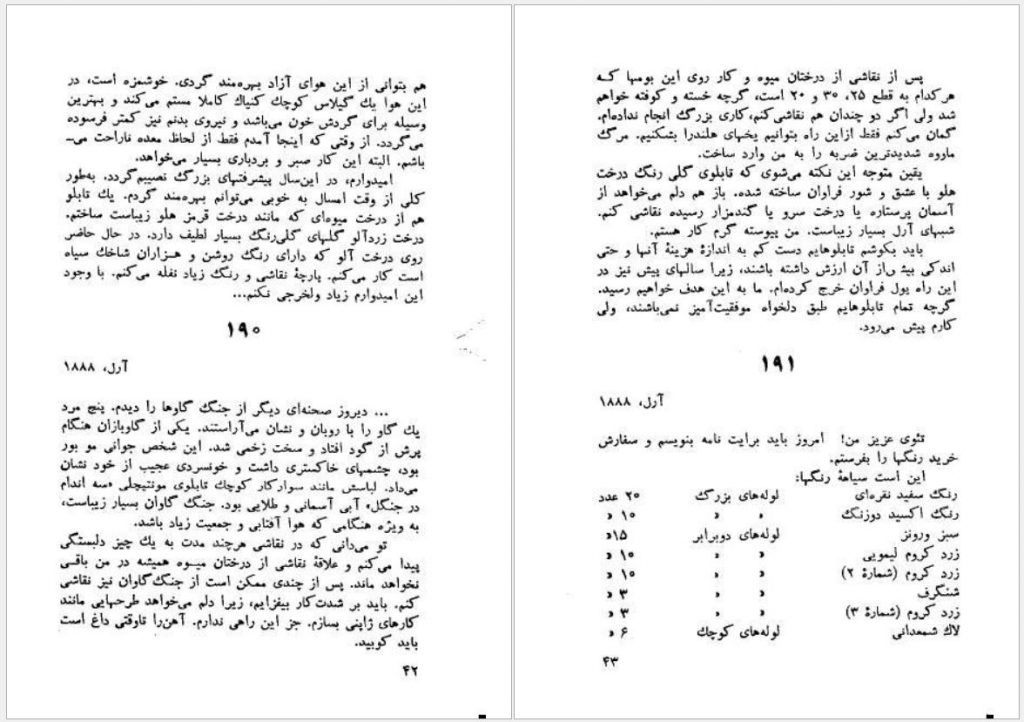 هم بتوانی از این هوای آزاد بهره‌مند گردی. خوشمزه است، در
این هوا یك گیلاس کوچك کنیاك کاملا مستم می‌کند و بهترین
وسیله برای گردش خون می‌باشد و نیروی بدنم نیز کمتر فرسوده
می‌گردد. از وقتی که اینجا آمدم فقط از لحاظ معده ناراحت می‌ـ
باشم. البته این کار صبر و بردباری بسیار می‌خواهد.
امیدوارم، در این‌سال پیشرفتهای بزرگ نصیبم‌گردد. به‌طور
کلی از وقت امسال به خوبی می‌توانم بهره‌مند گردم. یك تابلو
هم از درخت میوه‌ای که مانند درخت قرمز هلو زیباست ساختم.
درخت زردآلو گلهای گلی‌رنگ بسیار لطیف دارد. در حال حاضر
روی درخت آلو که دارای رنگ روشن و هـزاران شاخك سیاه
است کار می‌کنم. پارچهٔ نقاشی و رنگ زیاد نفله می‌کنم. با وجود
این امیدوارم زیاد ولخرجی نکنم...
۱۹۰
آرل، ۱۸۸۸
... دیروز صحنه‌ای دیگر از جنگ گاوها را دیدم. پنج مرد
یك گاو را با روبان و نشان می‌آراستند. یکی از گاوبازان هنگام
پرش از گود افتاد و سخت زخمی شد. این شخص جوانی مو بور
بود، چشمهای خاکستری داشت و خونسردی عجیب از خود نشان
می‌داد. لباسش مانند سوارکار کوچك تابلوی مونتیچلی «سه اندام
در جنگل» آبی آسمانی و طلایی بود. جنگ گاوان بسیار زیباست،
به ویژه هنگامی که هوا آفتابی و جمعیت زیاد باشد.
تو می‌دانی که در نقاشی هرچند مدت به یك چیز دلبستگی
پیدا می‌کنم و علاقهٔ نقاشی از درختان میـوه همیشه در من باقـی
نخواهد ماند. پس از چندی ممکن است از جنگ‌گاوان نیز نقاشی
کنم. باید بر شدت‌کار بیفزایم، زیرا دلم می‌خواهد طرحهایی مانند
کارهای ژاپنی بسازم. جز این راهی ندارم. آهن‌را تاوقتی داغ است
باید کوبید.
۴۲
پس از نقاشی از درختان میوه و کار روی این بومها کـه
هرکدام به قطع ۲۵، ۳۰ و ۲۰ است، گرچه خسته و کوفته خواهم
شد ولی اگر دو چندان هم نقاشی‌کنم،کاری بزرگ انجام نداده‌ام.
گمان می‌کنم فقط ازاین راه بتوانیم یخهای هلندرا بشکنیم. مرگ
ماووه شدیدترین ضربه را به من وارد ساخت.
یقین متوجه این نکته می‌شوی که تابلوی گلی رنگ درخت
هلو با عشق و شور فراوان ساخته شده. باز هم دلم می‌خواهد از
آسمان پرستاره یا درخت سرو یا گندمزار رسیده نقاشی کنم.
شبهای آرل بسیار زیباست. من پیوسته گرم کار هستم.
باید بکوشم تابلوهایم دست کم به اندازهٔ هزینهٔ آنها و حتی
اندکی بیش‌از آن ارزش داشته باشند، زیرا سالهای پیش نیز در
این راه پول فراوان خرج کرده‌ام. ما به این هدف خواهیم رسید.
گرچه تمام تابلوهایم طبق دلخواه موفقیت‌آمیز نمی‌باشند، ولی
کارم پیش می‌رود.
۱۹۱
آرل، ۱۸۸۸
تئوی عزیز من! امروز باید برایت نامه بنویسم و سفارش
خرید رنگها را بفرستم.
این است سیاههٔ رنگها:
رنگ سفید نقره‌ای لوله‌های بزرگ ۲۰ عدد
رنگ اکسید دوزنگ » » ۱۰ »
سبز ورونز لوله‌های دوبرابر ۱۵»
زرد کروم لیمویی » » ۱۰ »
زرد کروم (شمارهٔ ۲) » » ۱۰ »
شنگرف » » ۳ »
زرد کروم (شمارهٔ ۳) » » ۳ »
لاك شمعدانی لوله‌های کوچك ۶ »
۴۳